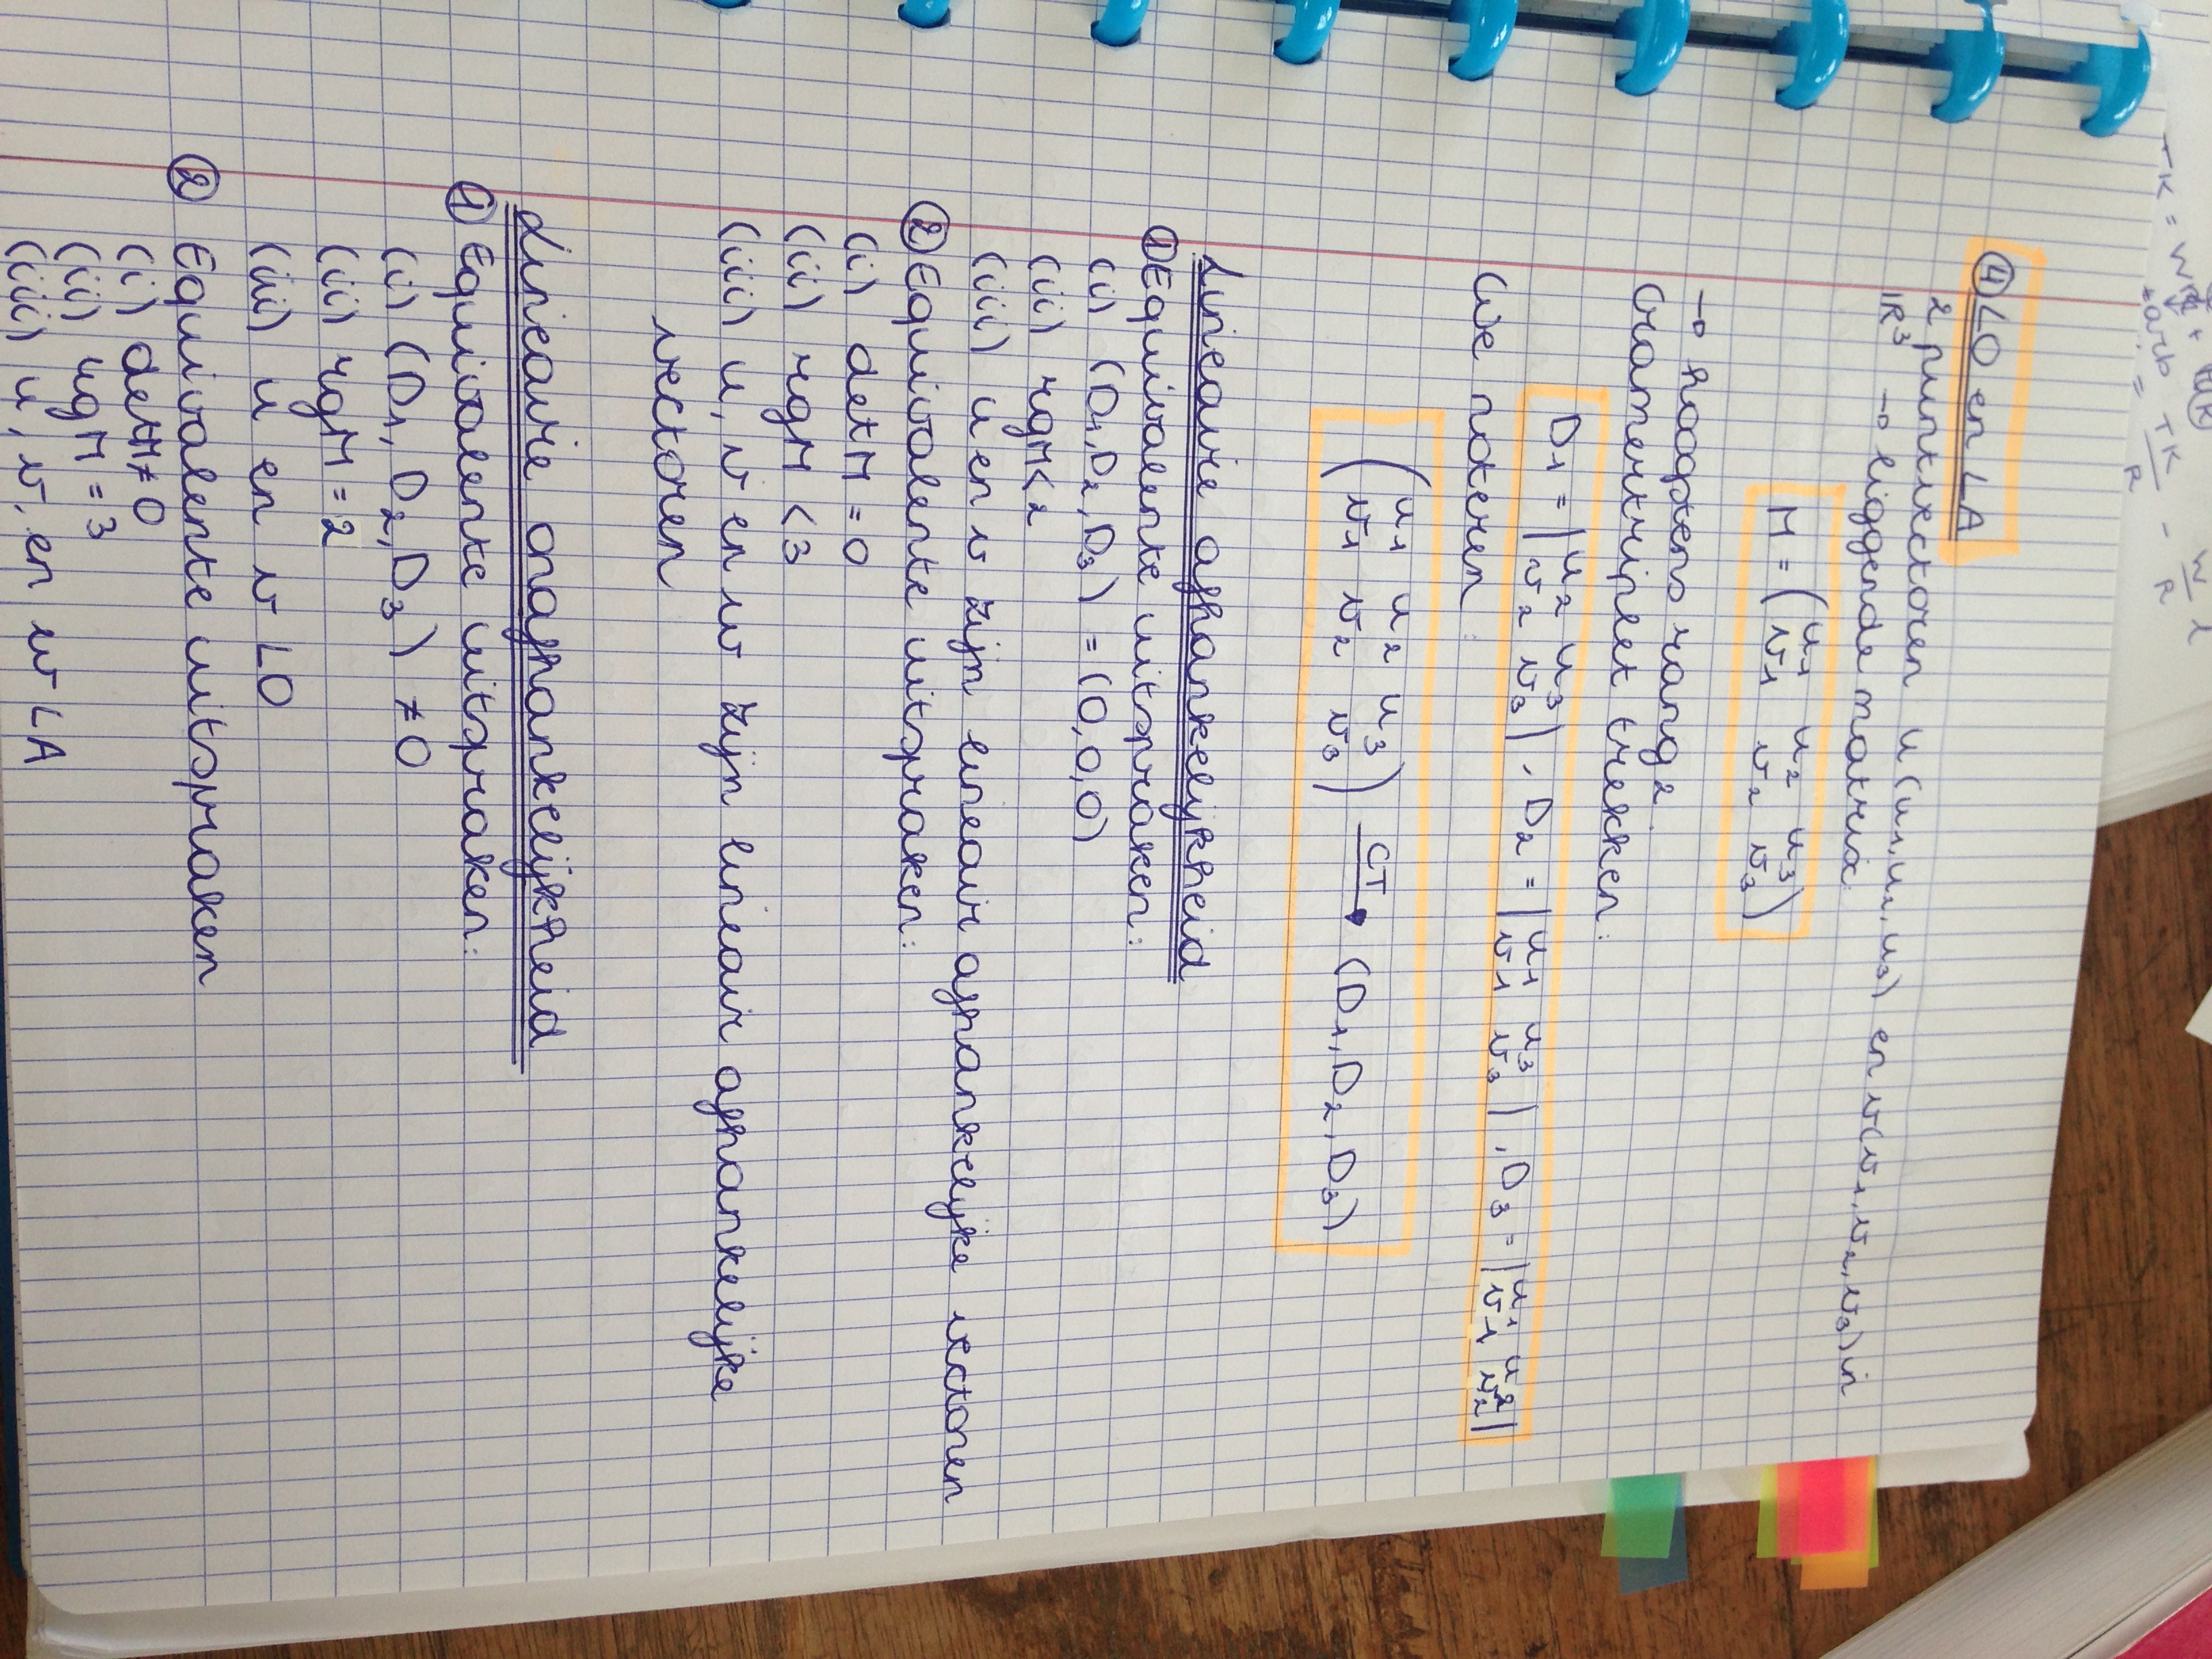 ④ LO en LA
2 puntvectoren u(u₁,u₂,u₃) en v(v₁,v₂,v₃) in
ℝ³ → liggende matrix:
M = (u₁ u₂ u₃
v₁ v₂ v₃)
→ hoogstens rang 2
Cramertriplet trekken:
D₁ = |u₂ u₃, D₂ = |u₁ u₃, D₃ = |u₁ u₂
v₂ v₃| v₁ v₃| v₁ v₂|
We noteren:
(u₁ u₂ u₃
v₁ v₂ v₃) CT→ (D₁,D₂,D₃)
Lineaire afhankelijkheid
① Equivalente uitspraken:
(i) (D₁,D₂,D₃) = (0,0,0)
(ii) rgM<2
(iii) u en v zijn lineair afhankelijke vectoren
② Equivalente uitspraken:
(i) detM = 0
(ii) rgM <3
(iii) u, v en w zijn lineair afhankelijke
vectoren
Lineaire onafhankelijkheid
① Equivalente uitspraken:
(i) (D₁, D₂, D₃) ≠ 0
(ii) rgM = 2
(iii) u en v LO
② Equivalente uitspraken
(i) detM≠0
(ii) rgM = 3
(iii) u, v, en w LA